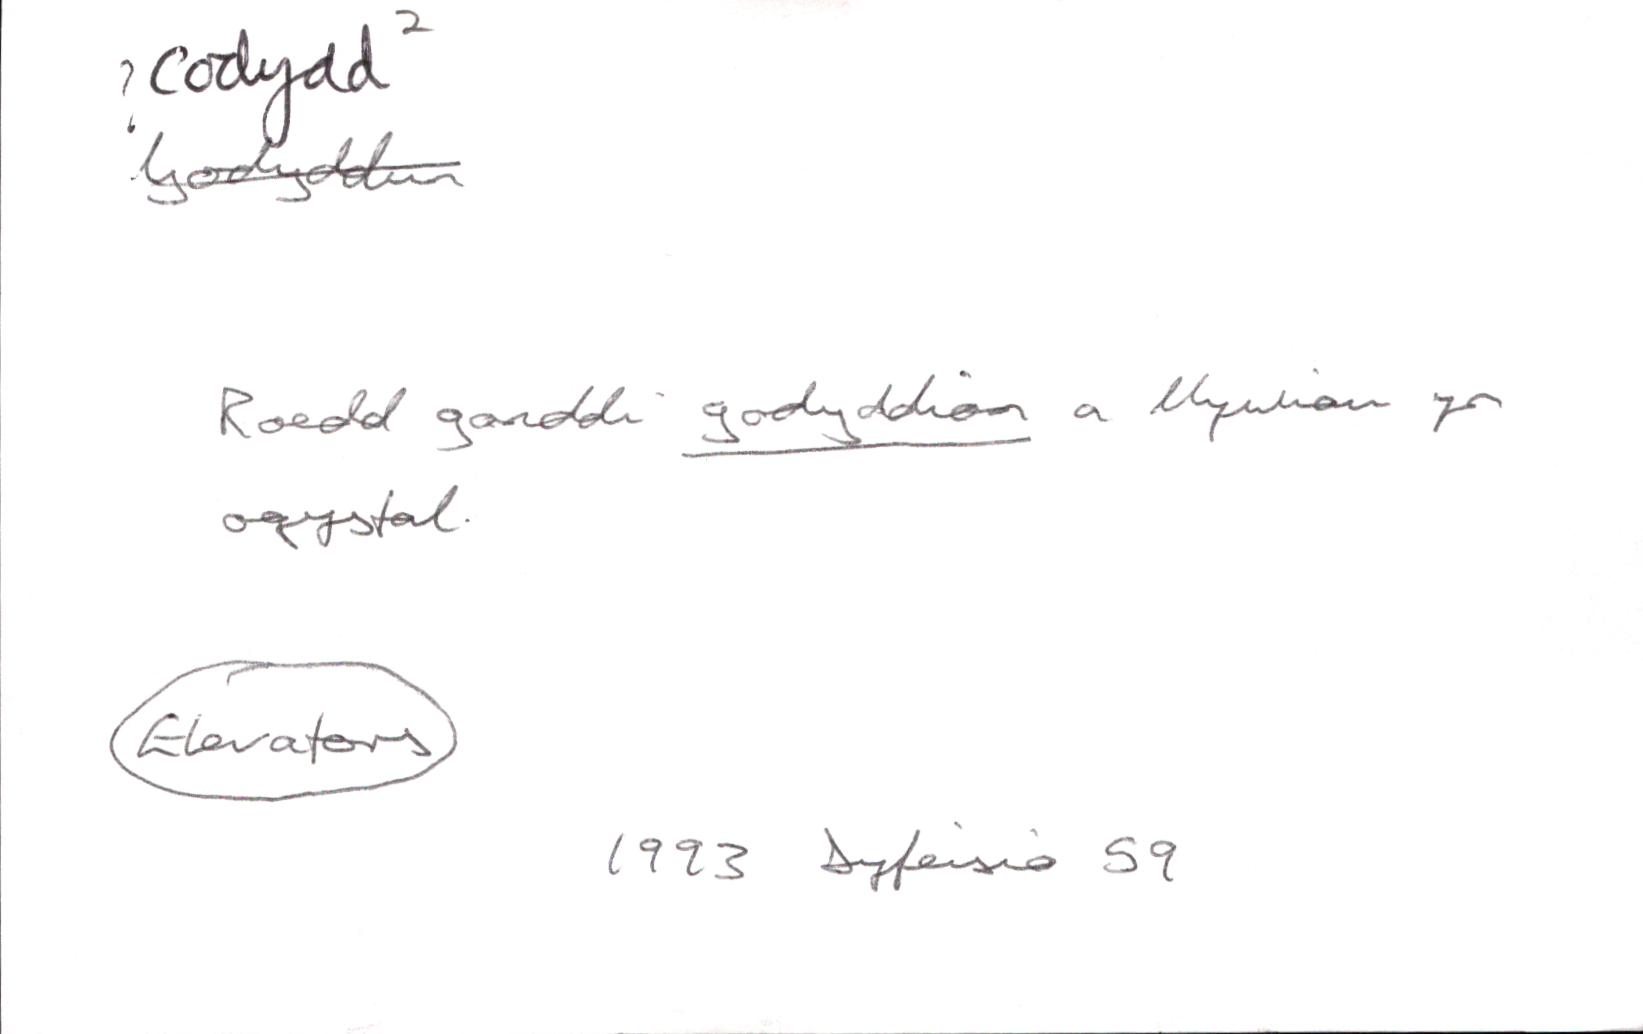 ? codydd ²
Godyddion
Roedd ganddi godyddion a llywiau yn
ogystal.
Elevators
1993 Dyfeisio 59